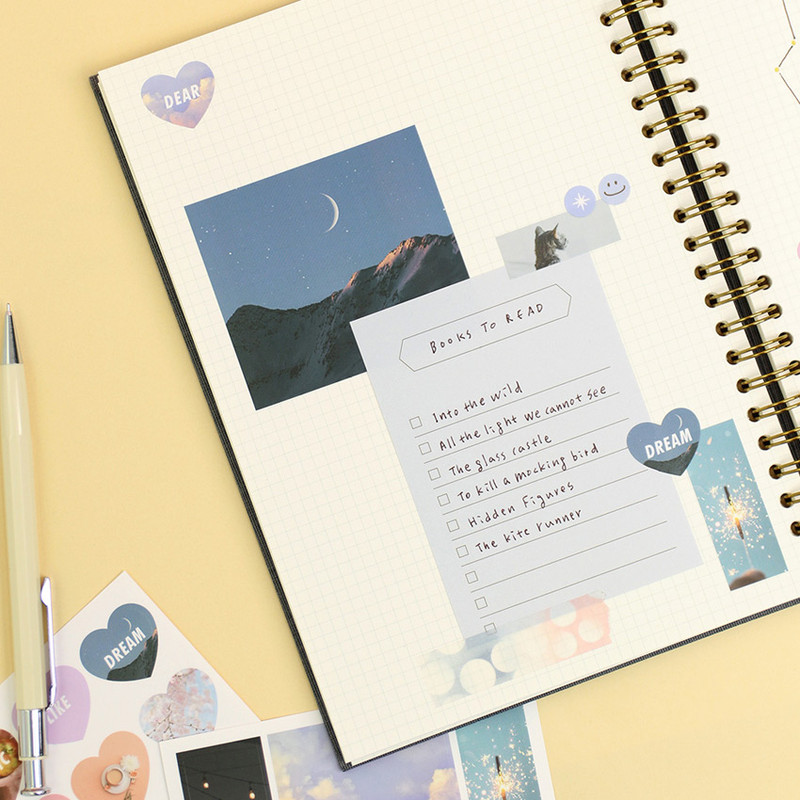 DEAR
BOOKS TO READ
Into the wild
All the light we cannot see
The glass castle
To kill a mocking bird
Hidden Figures
The kite runner
DREAM
DREAM
LIKE